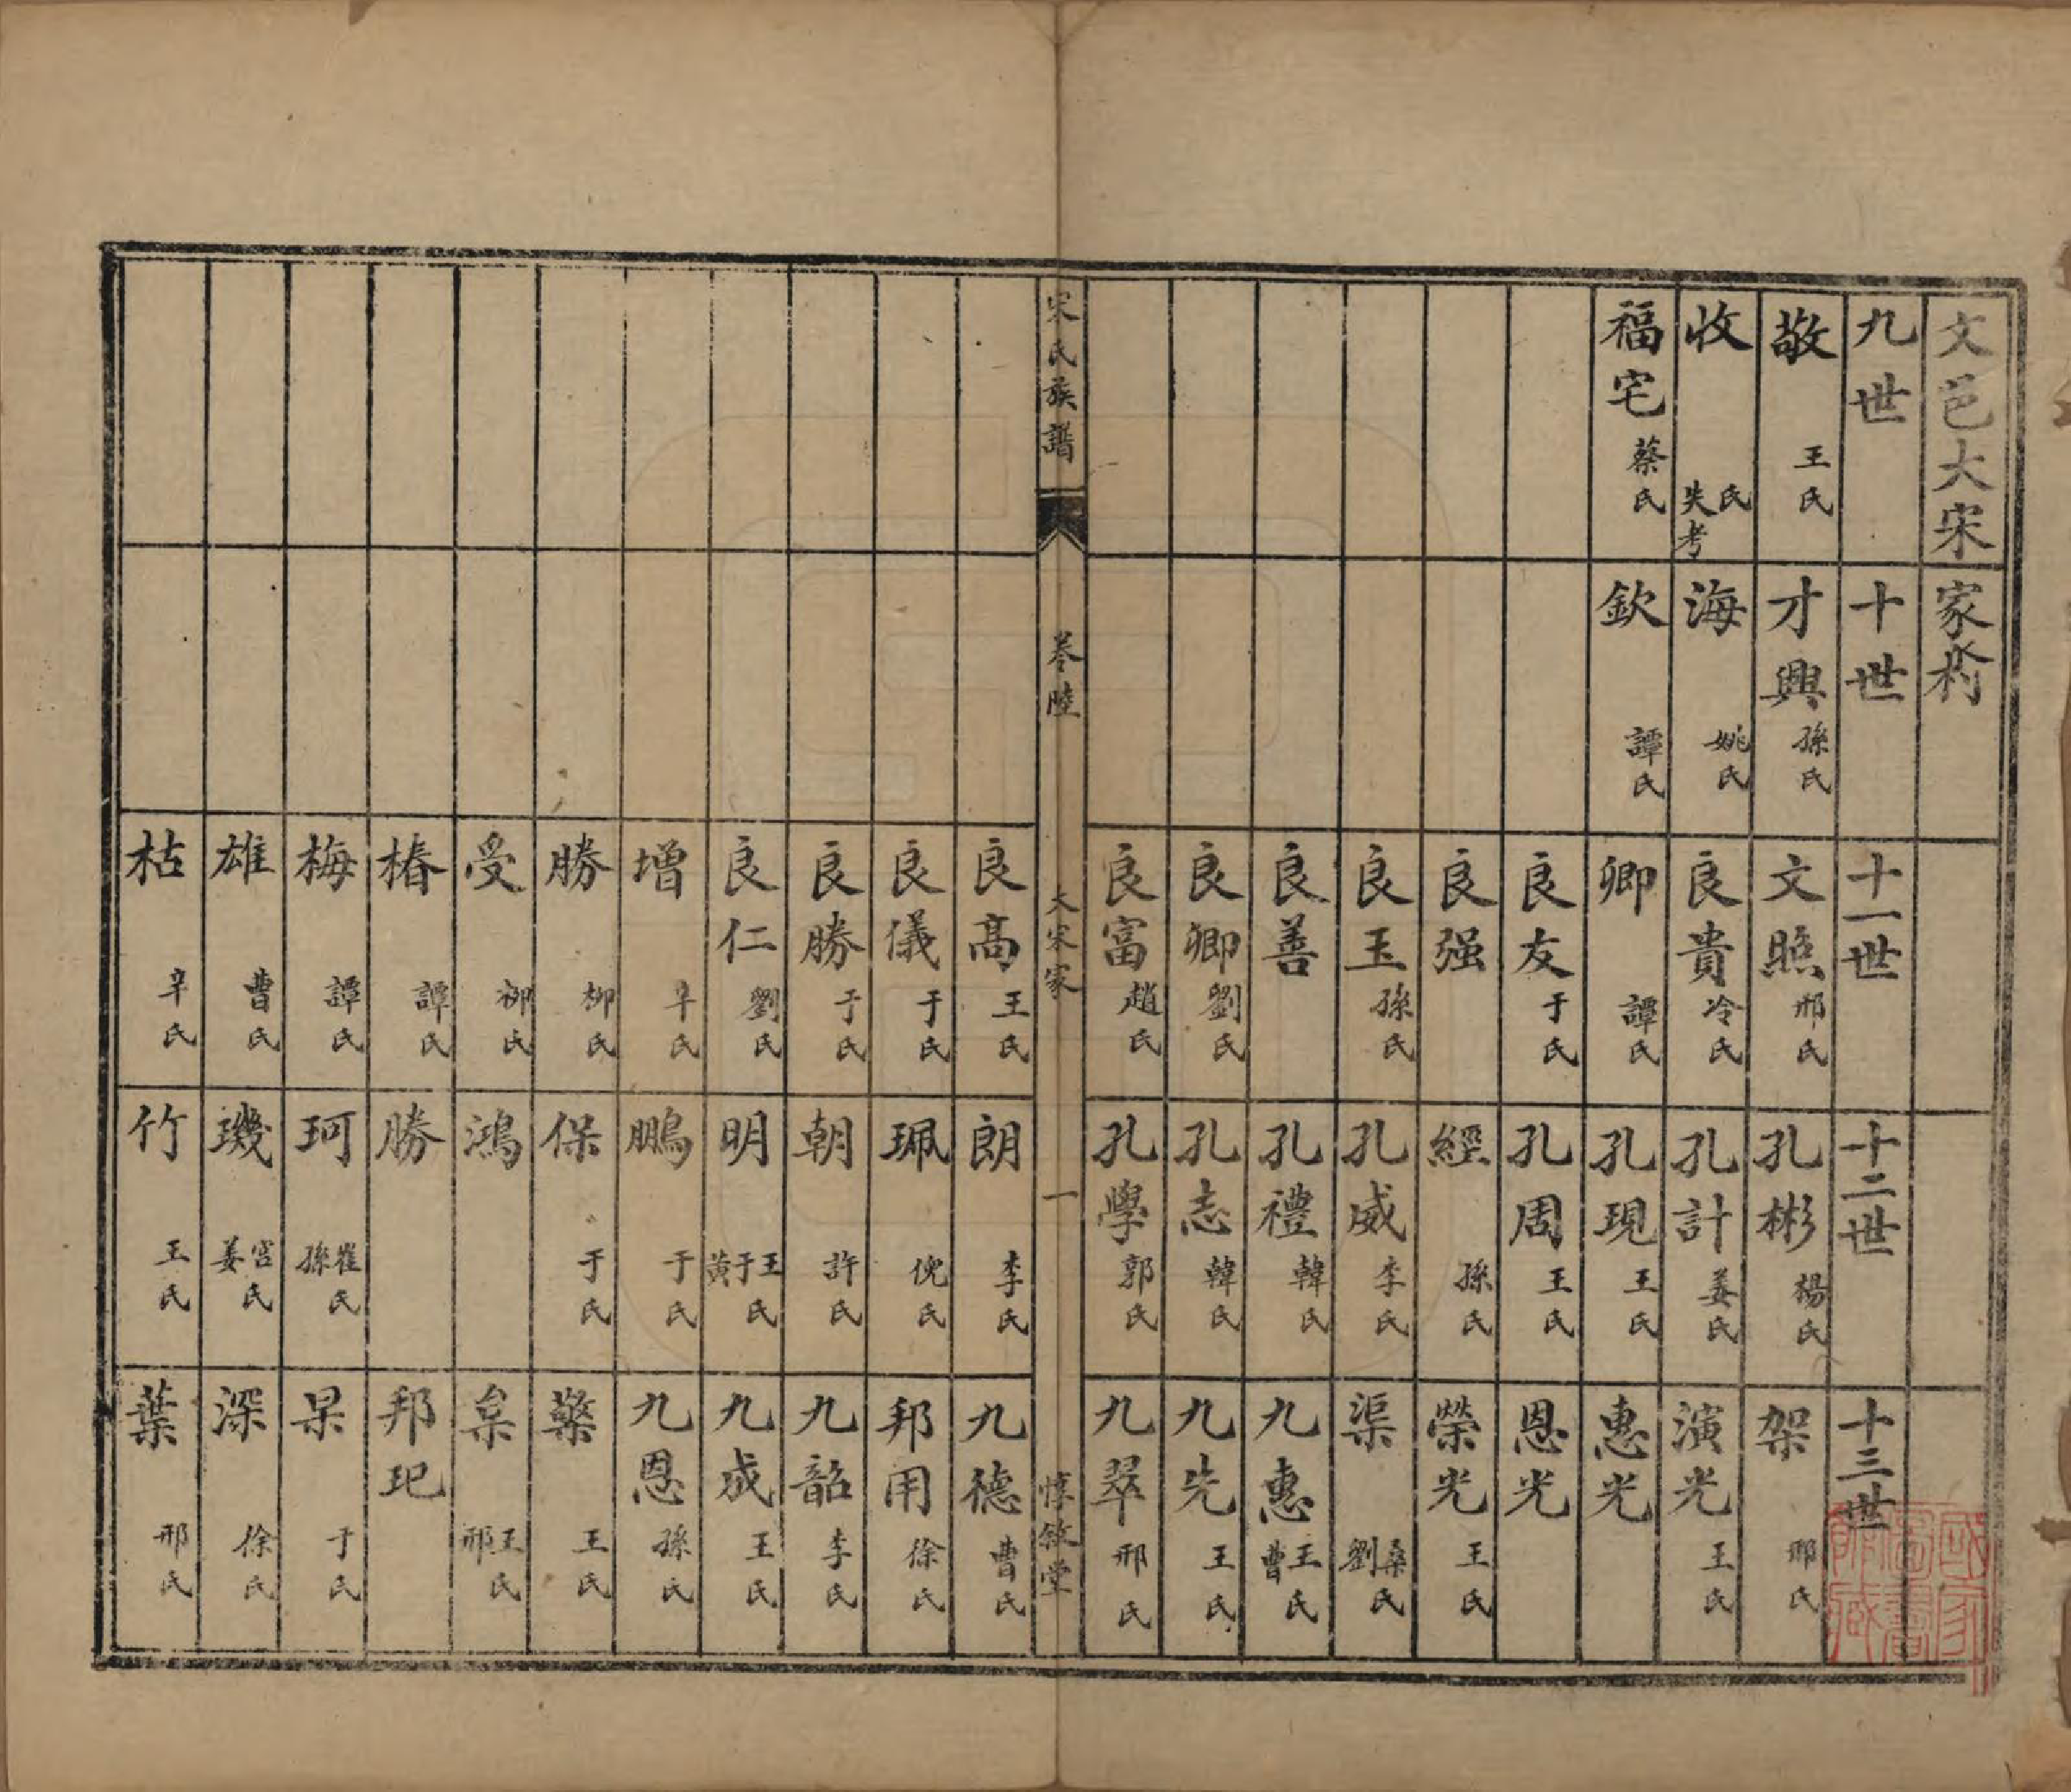 文邑大宋家
九世 十世 十一世 十二世 十三世
敬 王氏 才興 孫氏 文照 邢氏 孔彬 楊氏 架 邢氏
收 氏失考 海 姚氏 良貴 冷氏 孔計 姜氏 演光 王氏
福宅 蔡氏 欽 譚氏 卿 譚氏 孔現 王氏 惠光
良友 于氏 孔周 王氏 恩光
良强 經 孫氏 榮光 王氏
良玉 孫氏 孔威 李氏 渠 桑劉氏
良善 孔禮 韓氏 九惠 王曹氏
良卿 劉氏 孔志 韓氏 九先 王氏
良富 趙氏 孔學 郭氏 九翠 邢氏
宋氏族譜 卷陸 大宋家 一 惇敘堂
良高 王氏 朗 李氏 九德 曹氏
良儀 于氏 珮 倪氏 邦用 徐氏
良勝 于氏 朝 許氏 九韶 李氏
良仁 劉氏 明 王于黃氏 九成 王氏
增 辛氏 鵬 于氏 九恩 孫氏
勝 柳氏 保 于氏 檠 王氏
受 柳氏 鴻 王邢氏
椿 譚氏 勝 邦玘
梅 譚氏 珂 崔孫氏 杲 于氏
雄 曹氏 璣 宮姜氏 深 徐氏
枯 辛氏 竹 王氏 葉 邢氏
國家圖書館藏